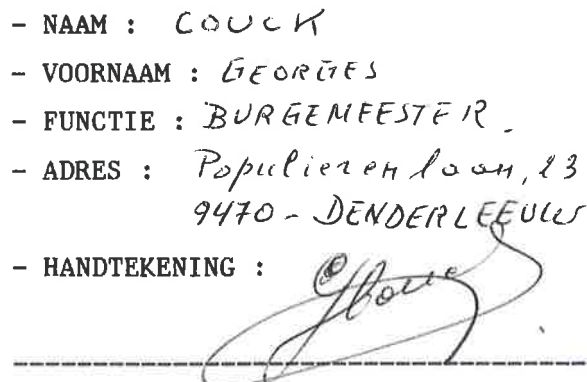 - NAAM : COUCK
- VOORNAAM : GEORGES
- FUNCTIE : BURGEMEESTER.
- ADRES : Populierenlaan, 23
9470 - DENDERLEEUW
- HANDTEKENING :